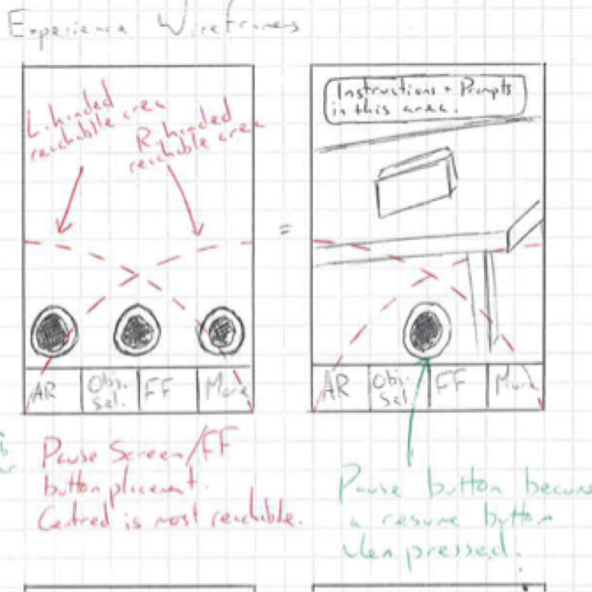 Experience Wireframes
L. handed
reachable area
R. handed
reachable area
AR
Obj.
Sel.
FF
More
=
Instructions + Prompts
in this area.
AR
Obj.
Sel.
FF
More
Pause Screen/FF
button placement.
Centred is most reachable.
Pause button become
a resume button
when pressed.